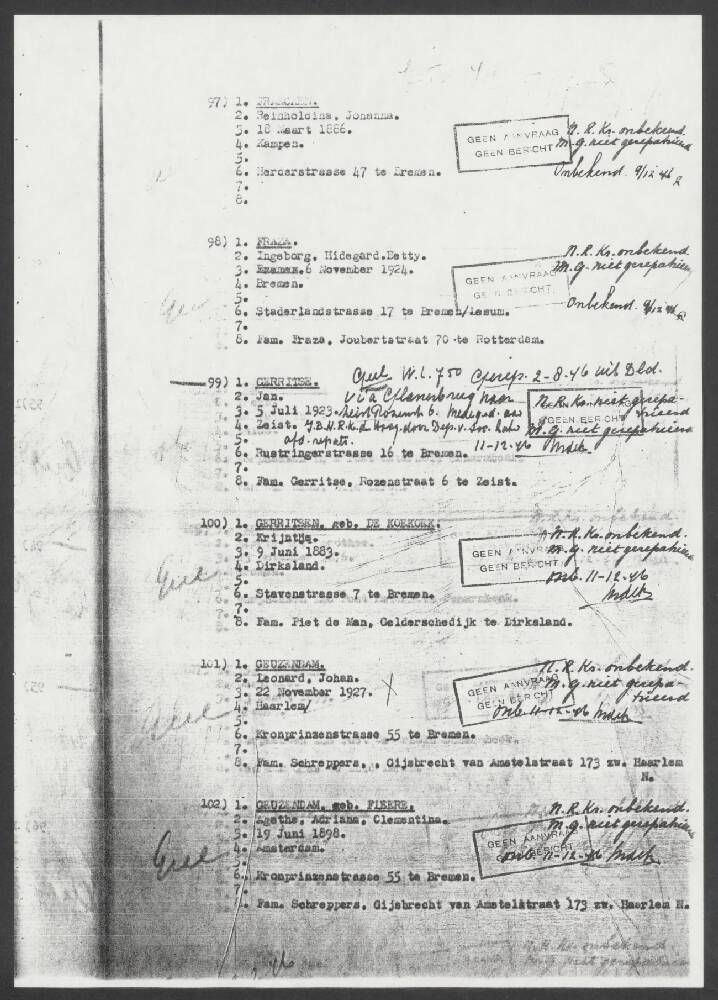 97) 1.
2. Reinholdina, Johanna.
3. 18 Maart 1886.
4. Kampen.
5.
6. Herderstrasse 47 te Bremen.
7.
8.
GEEN AANVRAAG
GEEN BERICHT
N. R. Kr. onbekend
M.G. niet gerepatrieerd
Onbekend. 9/12 46
98) 1. FRAZA.
2. Ingeborg, Hidegard.Betty.
3. 6 November 1924.
4. Bremen.
5.
6. Staderlandstrasse 17 te Bremen/Lesum.
7.
8. Fam. Fraza, Joubertstraat 70 te Rotterdam.
GEEN AANVRAAG
GEEN BERICHT
N. R. Kr. onbekend
M.G. niet gerepatrieerd
Onbekend. 9/12 46
99) 1. GERRITSE.
2. Jan.
3. 5 Juli 1923.
4. Zeist.
5.
6. Rustringerstrasse 16 te Bremen.
7.
8. Fam. Gerritse, Rozenstraat 6 te Zeist.
Geel W.L. 750 Gerep. 2-8-46 uit Dld.
via
afd. repatr.
GEEN BERICHT
N. R. Kr. niet gerepa-
trieerd
M.G. niet gerepatrieerd
11-12-46
100) 1. GERRITSEN, geb. DE KOEKOEK.
2. Krijntje.
3. 9 Juni 1883.
4. Dirksland.
5.
6. Stavenstrasse 7 te Bremen.
7.
8. Fam. Piet de Man, Gelderschedijk te Dirksland.
Geel
GEEN AANVRAAG
GEEN BERICHT
N. R. Kr. onbekend.
M.G. niet gerepatrieerd
onb. 11-12-46
101) 1. GEUZENDAM.
2. Leonard, Johan.
3. 22 November 1927.
4. Haarlem/
5.
6. Kronprinzenstrasse 55 te Bremen.
7.
8. Fam. Schreppers, Gijsbrecht van Amstelstraat 173 zw. Haarlem
N.
Geel
GEEN AANVRAAG
GEEN BERICHT
N. R. Kr. onbekend.
M.G. niet gerepa-
trieerd
Onb. 11-12-46
102) 1. GEUZENDAM, geb. FIEERE.
2. Agathe, Adriana, Clementina.
3. 19 Juni 1898.
4. Amsterdam.
5.
6. Kronprinzenstrasse 55 te Bremen.
7.
8. Fam. Schreppers, Gijsbrecht van Amstelstraat 173 zw. Haarlem N.
Geel
GEEN AANVRAAG
GEEN BERICHT
N. R. Kr. onbekend.
M.G. niet gerepatrieerd
onb. 11-12-46